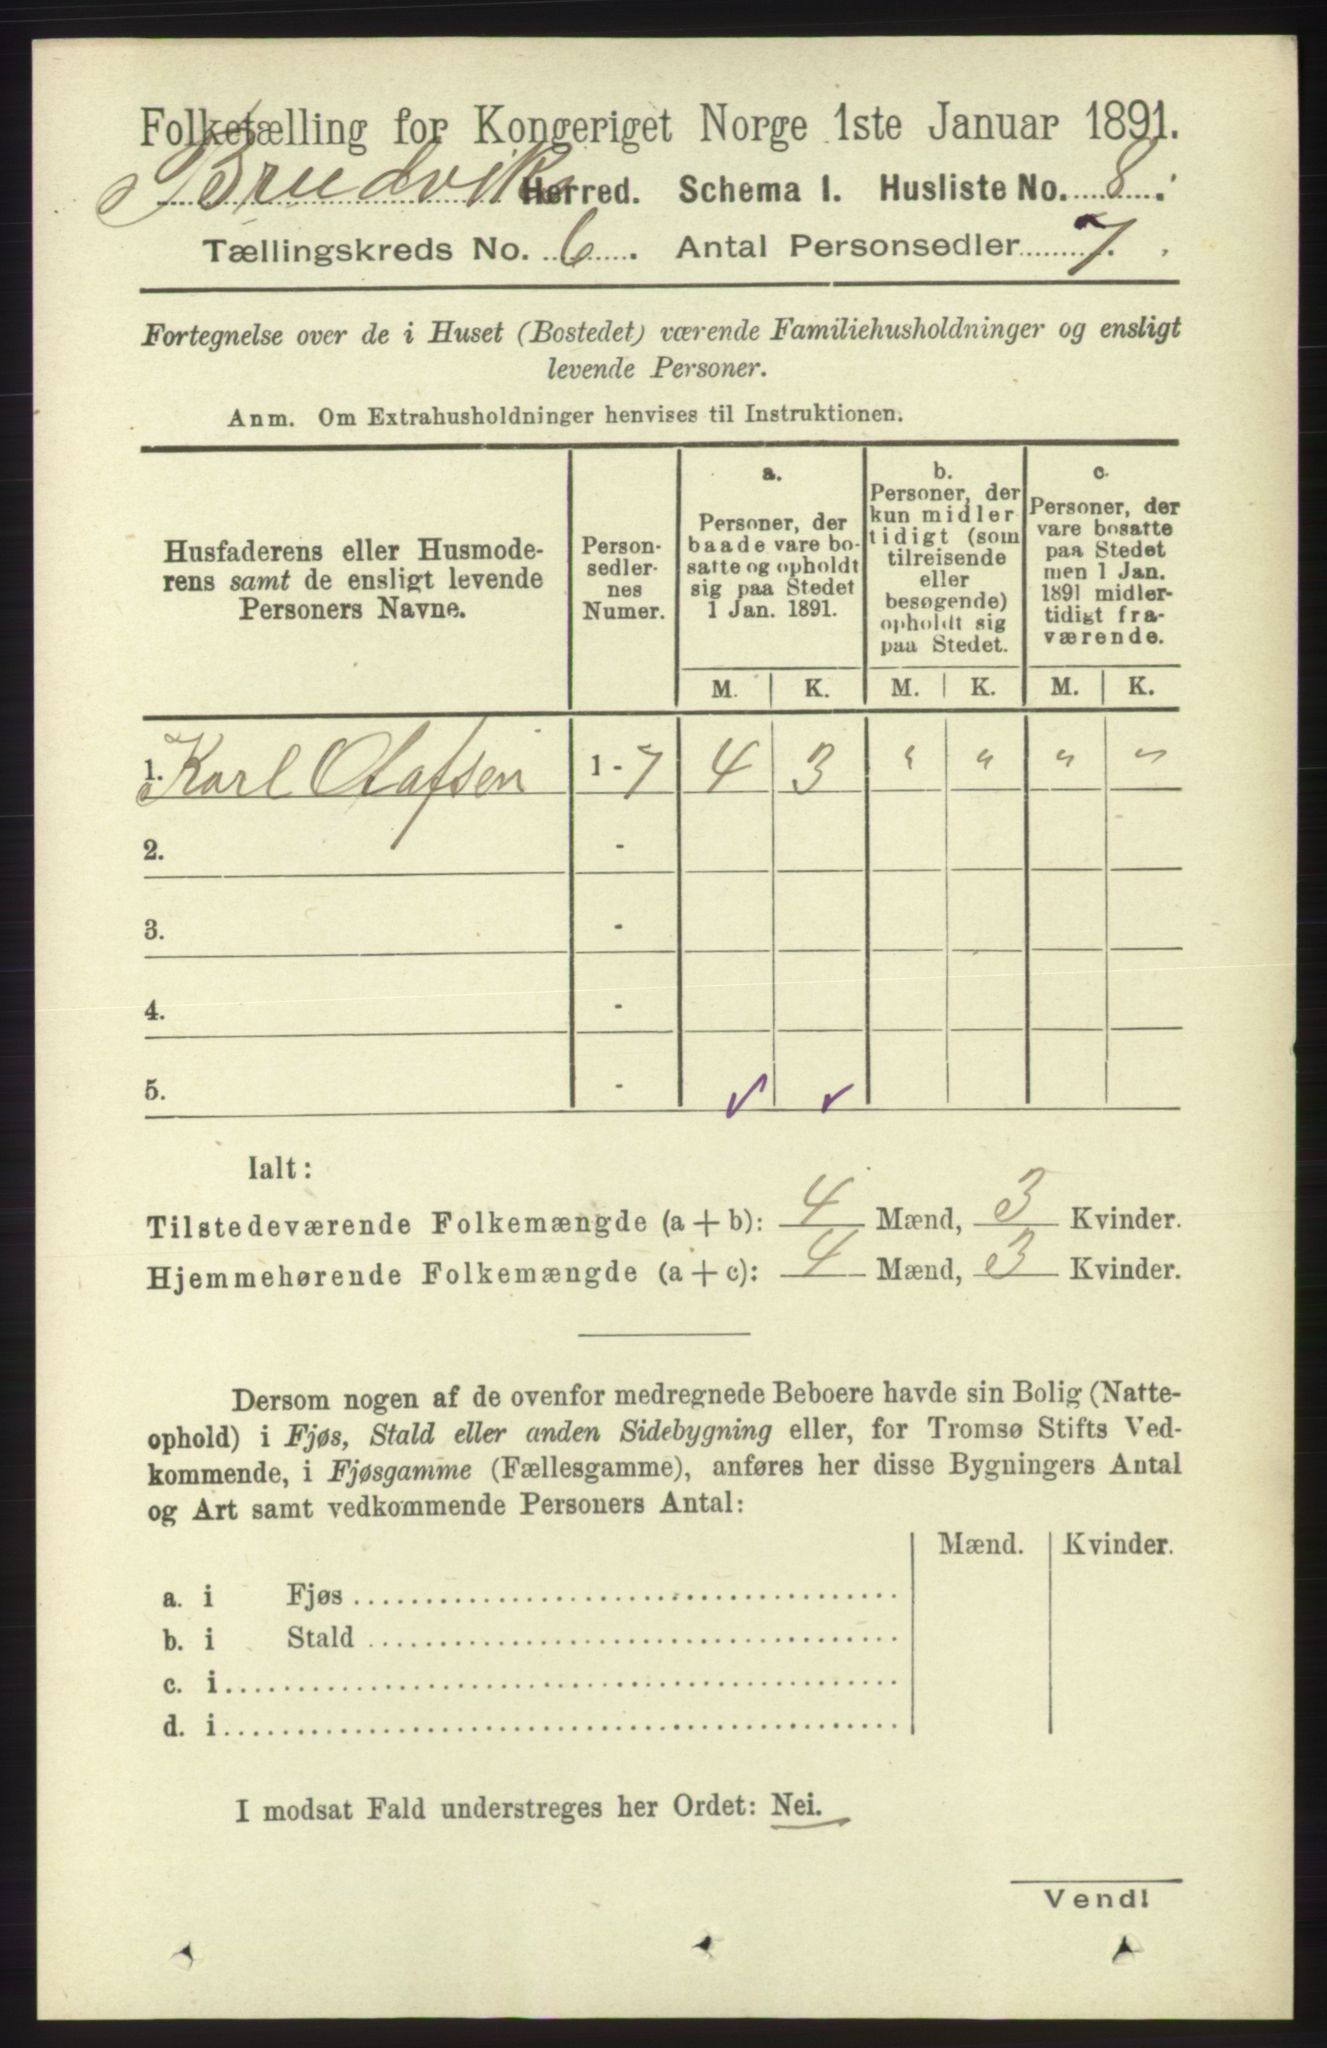 Folketælling for Kongeriget Norge 1ste Januar 1891.
Bruvik Herred. Schema I. Husliste No. 8.
Tællingskreds No. 6. Antal Personsedler 7.
Fortegnelse over de i Huset (Bostedet) værende Familiehusholdninger og ensligt
levende Personer.
Anm. Om Extrahusholdninger henvises til Instruktionen.
Husfaderens eller Husmode-
rens samt de ensligt levende
Personers Navne.
Person-
sedler-
nes
Numer.
a.
Personer, der
baade vare bo-
satte og opholdt
sig paa Stedet
1 Jan. 1891.
b.
Personer, der
kun midler
tidigt (som
tilreisende
eller
besøgende)
opholdt sig
paa Stedet.
c.
Personer, der
vare bosatte
paa Stedet
men 1 Jan.
1891 midler-
tidigt fra-
værende.
M. K. M. K. M. K.
1. Karl Olafsen 1 - 7 4 3 " " " "
2. -
3. -
4. -
5. -
Ialt:
Tilstedeværende Folkemængde (a + b): 4 Mænd, 3 Kvinder.
Hjemmehørende Folkemængde (a + c): 4 Mænd, 3 Kvinder.
Dersom nogen af de ovenfor medregnede Beboere havde sin Bolig (Natte-
ophold) i Fjøs, Stald eller anden Sidebygning eller, for Tromsø Stifts Ved-
kommende, i Fjøsgamme (Fællesgamme), anføres her disse Bygningers Antal
og Art samt vedkommende Personers Antal:
Mænd. Kvinder.
a. i Fjøs
b. i Stald
c. i
d. i
I modsat Fald understreges her Ordet: Nei.
Vend!